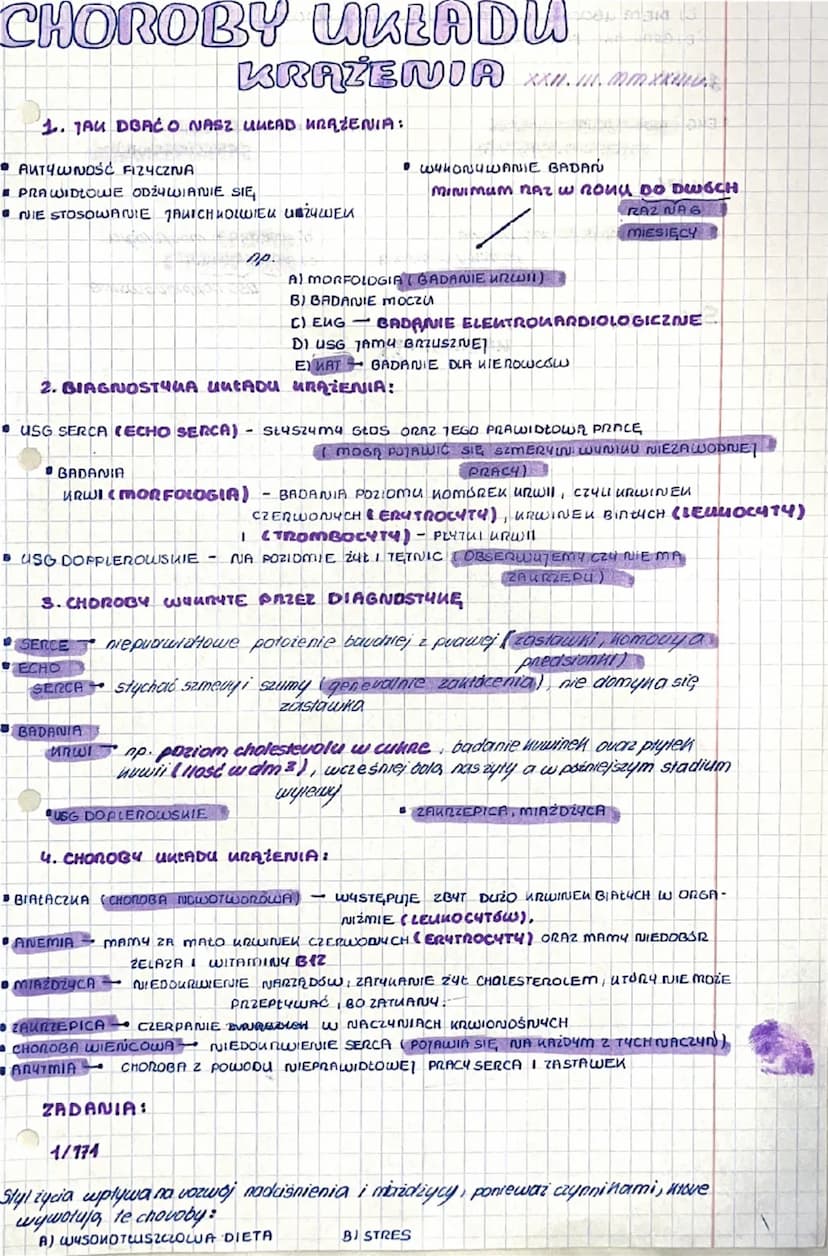 CHOROBY UKŁADU
KRĄŻENIA XXII.III.MMXXIIII.
1. JAK DBAĆ O NASZ UKŁAD KRĄŻENIA:
• AKTYWNOŚĆ FIZYCZNA
• PRAWIDŁOWE ODŻYWIANIE SIĘ,
• NIE STOSOWANIE JAKICHKOLWIEK UŻYWEK
• WYKONYWANIE BADAŃ
MINIMUM RAZ W ROKU DO DWÓCH
RAZ NA 6
MIESIĘCY
np.
A) MORFOLOGIA (BADANIE KRWII)
B) BADANIE MOCZU
C) EKG — BADANIE ELEKTROKARDIOLOGICZNE
D) USG JAMY BRZUSZNEJ
E) KAT → BADANIE DLA KIEROWCÓW
2. DIAGNOSTYKA UKŁADU KRĄŻENIA:
• USG SERCA (ECHO SERCA) - SŁYSZYMY GŁOS ORAZ JEGO PRAWIDŁOWĄ PRACĘ
(MOGĄ POJAWIĆ SIĘ SZMERY W WYNIKU NIEZAWODNEJ
PRACY)
• BADANIA
KRWI (MORFOLOGIA) - BADANIA POZIOMU KOMÓREK KRWII, CZYLI KRWINEK
CZERWONYCH (ERYTROCYTY), KRWINEK BIAŁYCH (LEUKOCYTY)
I (TROMBOCYTY) - PŁYTKI KRWII
• USG DOPPLEROWSKIE - NA POZIOMIE ŻYŁ I TĘTNIC (OBSERWUJEMY CZY NIE MA
ZAKRZEPU)
3. CHOROBY WYKRYTE PRZEZ DIAGNOSTYKĘ
• SERCE → nieprawidłowe położenie bardziej z prawej (zastawki, komory a
predsionki)
• ECHO
SERCA → słychać szmery i szumy (generalnie zakłócenia), nie domyka się
zastawka
• BADANIA
KRWI → np. poziom cholesterolu w cukre, badanie krwinek oraz płytek
krwii (ilość w dm³), wcześniej bolą nas żyły a w późniejszym stadium
wylewy
• USG DOPLEROWSKIE
• ZAKRZEPICA, MIAŻDŻYCA
4. CHOROBY UKŁADU KRĄŻENIA:
• BIAŁACZKA (CHOROBA NOWOTWOROWA) — WYSTĘPUJE ZBYT DUŻO KRWINEK BIAŁYCH W ORGA-
NIŹMIE (LEUKOCYTÓW),
• ANEMIA → MAMY ZA MAŁO KRWINEK CZERWONYCH (ERYTROCYTY) ORAZ MAMY NIEDOBÓR
ŻELAZA I WITAMINY B12
• MIAŻDŻYCA → NIEDOKRWIENIE NARZĄDÓW, ZATYKANIE ŻYŁ CHOLESTEROLEM, KTÓRY NIE MOŻE
PRZEPŁYWAĆ, BO ZATKANY.
• ZAKRZEPICA → CZERPANIE W NACZYNIACH KRWIONOŚNYCH
• CHOROBA WIEŃCOWA → NIEDOKRWIENIE SERCA (POJAWIA SIĘ NA KAŻDYM Z TYCH NACZYŃ)
• ARYTMIA → CHOROBA Z POWODU NIEPRAWIDŁOWEJ PRACY SERCA I ZASTAWEK
ZADANIA:
1/171
Styl życia wpływa na rozwój nadciśnienia i miażdżycy, ponieważ czynnikami, które
wywołują te choroby:
A) WYSOKOTŁUSZCZOWA DIETA
B) STRES